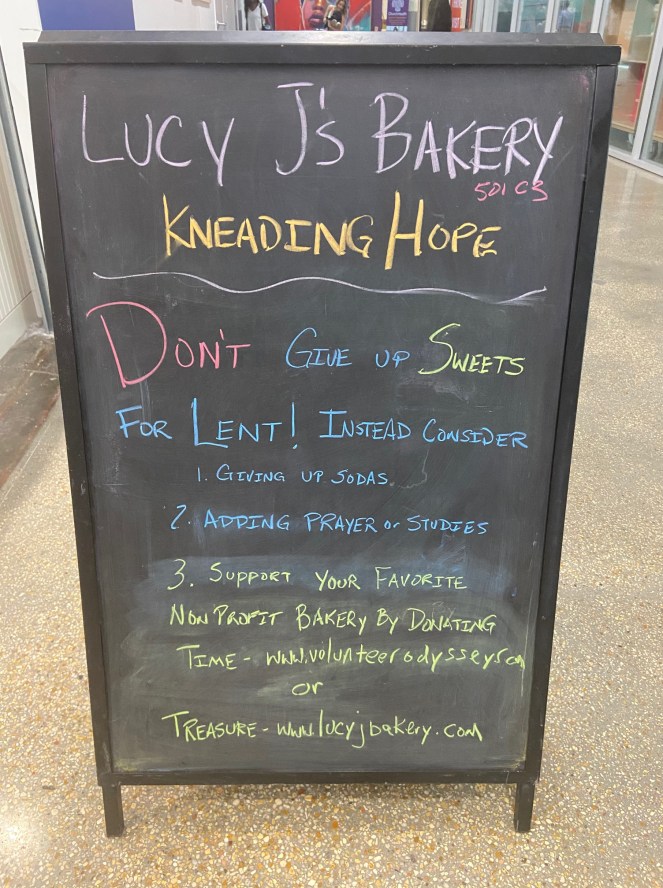 LUCY J'S BAKERY
501 C3
KNEADING HOPE
DON'T GIVE UP SWEETS
FOR LENT! INSTEAD CONSIDER
1. GIVING UP SODAS
2. ADDING PRAYER or STUDIES
3. SUPPORT YOUR FAVORITE
NON PROFIT BAKERY BY DONATING
TIME - www.volunteerodyssey.com
or
TREASURE - www.lucyjbakery.com